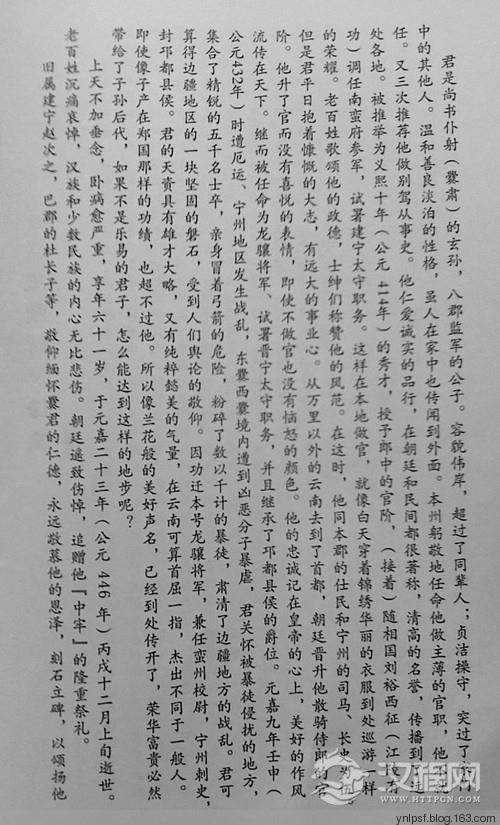 君是尚书仆射(爨肃)的玄孙,八郡监军的公子。容貌伟岸,超过了同辈人;贞洁操守,突过了
中的其他人。温和善良淡泊的性格,虽人在家中也传闻到外面。本州躬敬地任命他做主薄的官职,他不就
任。又三次推荐他做别驾从事史。他仁爱诚实的品行,在朝廷和民间都很著称,清高的名誉,传播到远
处各地。被推举为义熙十年(公元414年)的秀才,授予郎中的官阶,(接着)随相国刘裕西征(江陵有
功)调任南蛮府参军,试署建宁太守职务。这样在本地做官,就像白天穿着锦绣华丽的衣服到处巡游一样
的荣耀。老百姓歌颂他的政德,士绅们称赞他的风范。在这时,他同本郡的仕民和宁州的司马、长史为伍。
但是君平日抱着慷慨的大志,有远大的事业心。从万里以外的云南去到了首都,朝廷晋升他散骑侍郎的官
阶。他升了官而没有喜悦的表情,即使不做官也没有恼怒的颜色。他的忠诚记在皇帝的心上,美好的作风
流传在天下。继而被任命为龙骧将军、试署晋宁太守职务,并且继承了邛都县侯的爵位。元嘉九年壬申(
公元432年)时遭厄运、宁州地区发生战乱,东爨西爨境内遭到凶恶分子暴虐,君关怀被暴徒侵扰的地方,
集合了精锐的五千名士卒,亲身冒着弓箭的危险,粉碎了数以千计的暴徒,肃清了边疆地方的战乱。君可
算得边疆地区的一块坚固的磐石,受到人们舆论的敬仰。因功迁本号龙骧将军,兼任蛮州校尉,宁州刺史,
封邛都县侯。君的天资具有雄才大略,又有纯粹懿美的气量,在云南可算首屈一指,杰出不同于一般人。
即使像子产在郑国那样的功绩,也超不过他。所以像兰花般的美好声名,已经到处传开了,荣华富贵必然
带给了子孙后代,如果不是乐易的君子,怎么能达到这样的地步呢?
上天不加垂念,卧病愈严重,享年六十一岁,于元嘉二十三年(公元446年)丙戌十二月上旬逝世。
老百姓沉痛哀悼,汉族和少数民族的内心无比悲伤。朝廷遥致伤悼,追赠他『中牢』的隆重祭礼。
旧属建宁赵次之,巴郡的杜长子等,敬仰缅怀爨君的仁德,永远敬慕他的恩泽,刻石立碑,以颂扬他
汉程网
HTTPCN.COM
ynlpsf.blog.163.com